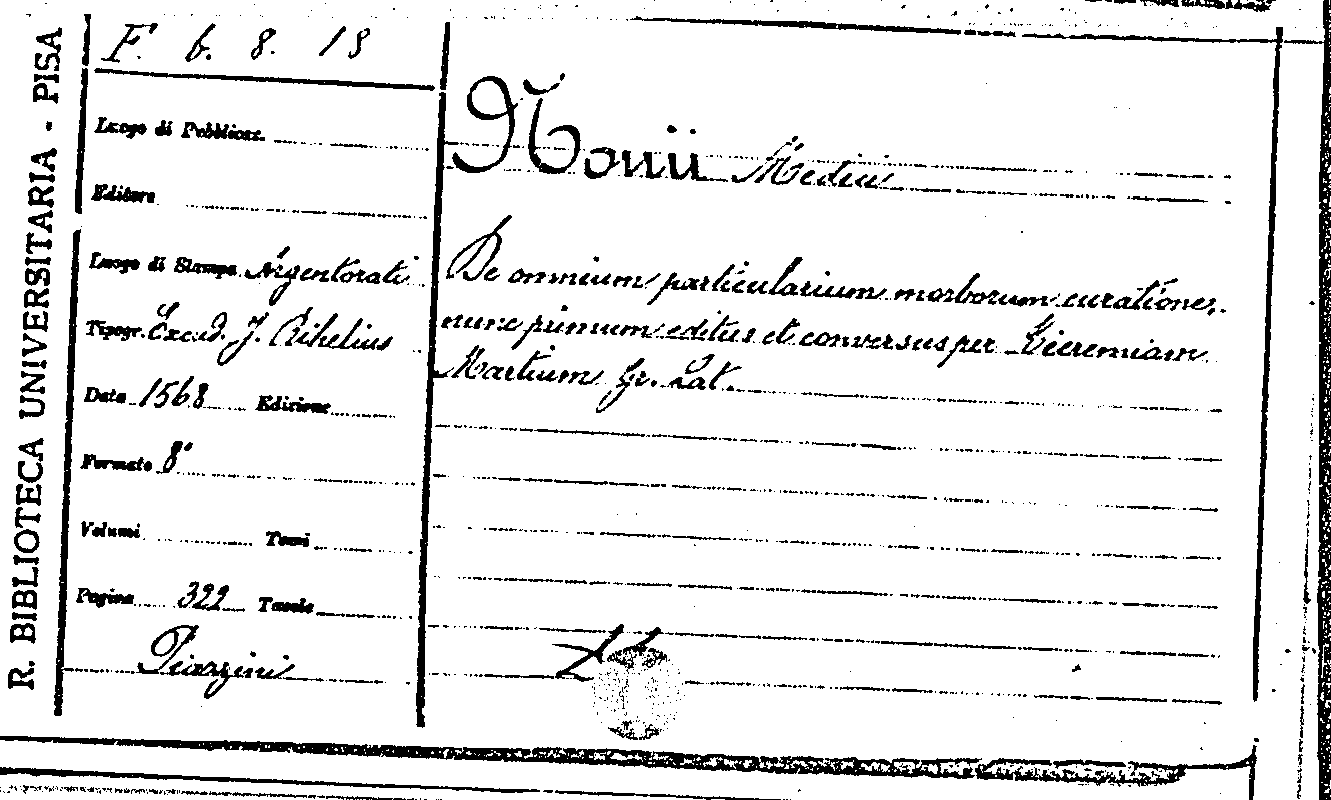 R. BIBLIOTECA UNIVERSITARIA - PISA
F. 6. 8. 18
Luogo di Pubblicaz.
Editore
Luogo di Stampa Argentorati
Tipogr. Excud. J. Rihelius
Data 1568 Edizione
Formato 8°
Volumi Tomi
Pagine 322 Tavole
Piarzini
Nonii Medici
De omnium particularium morborum curatione,
nunc primum editus et conversus per Hieremiam
Martium Gr. Lat.